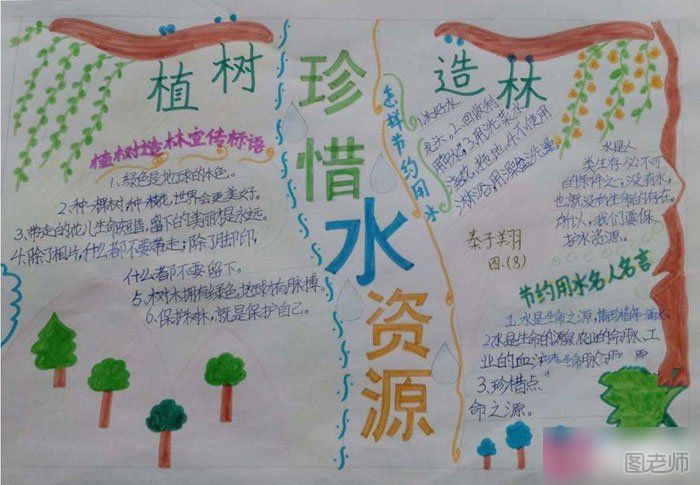 植树
造林
珍惜水资源
植树造林宣传标语
1、绿色是地球的本色。
2、种一棵树，种一枝花，世界会更美好。
3、带走的
留下的美丽才是永远。
4、除了相片，什么都不要带走；除了脚印，
什么都不要留下。
5、树木拥有绿色，地球才有脉搏。
6、保护树林，就是保护自己。
怎样节约用水
2、回收利
用 3、用洗菜水
浇花、拖地 4、不使用
淋浴，用
秦子翔
四.(8)
水是人
类生存必不可
的条件之一，没有水，
也就没有生命的存在。
所以，我们要保
护水资源。
节约用水名人名言
1、水是生命之源，请珍惜每一滴水
2、水是生命的源泉、农业的命脉、工
业的血液
3、珍惜点
命之源。
图老师